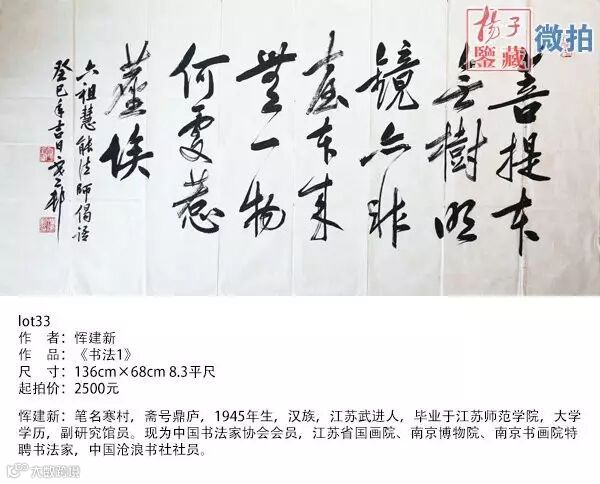 揚子
鑒藏
微拍
菩提本
无樹明
鏡亦非
臺本来
無一物
何處惹
塵埃
六祖慧能法師偈語
癸巳年吉日寒邨
lot33
作 者：恽建新
作 品：《书法1》
尺 寸：136cm×68cm 8.3平尺
起拍价：2500元
恽建新：笔名寒村，斋号鼎庐，1945年生，汉族，江苏武进人，毕业于江苏师范学院，大学
学历，副研究馆员。现为中国书法家协会会员，江苏省国画院、南京博物院、南京书画院特
聘书法家，中国沧浪书社社员。
大数跨境